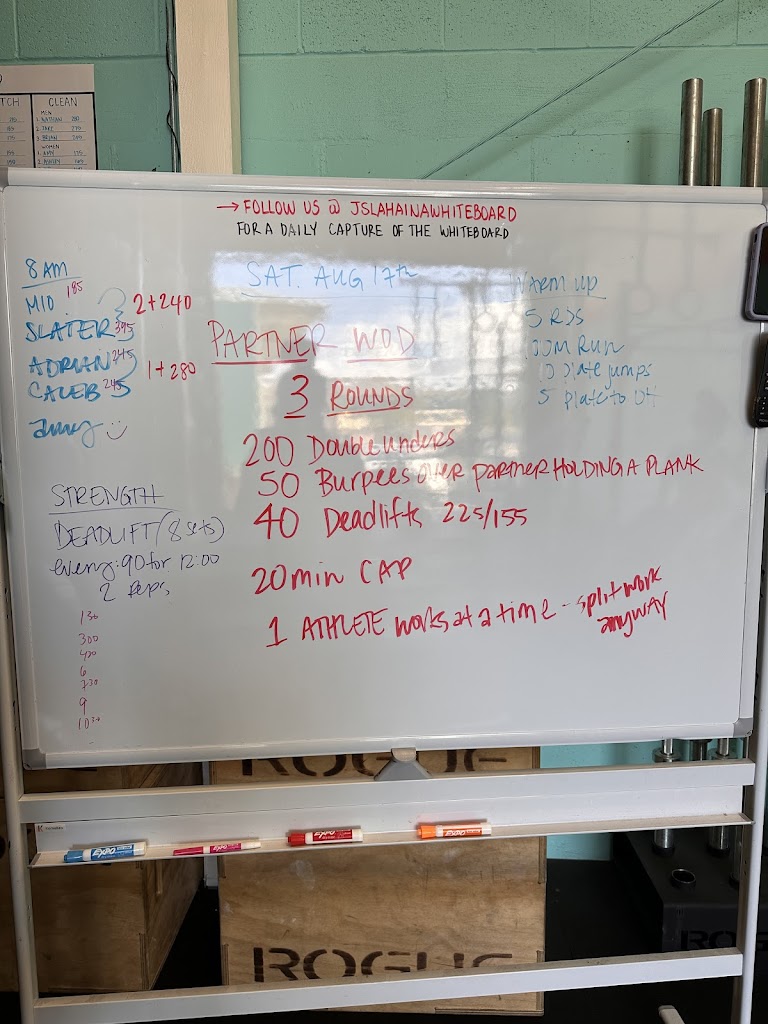 TCH
CLEAN
MEN
WOMEN
→ FOLLOW US @ JSLAHAINAWHITEBOARD
FOR A DAILY CAPTURE OF THE WHITEBOARD
8 AM
MIO 185
SLATER 395
2+240
ADRIAN 245
CALEB 245
1+280
amy
SAT. AUG 17th
PARTNER WOD
3 ROUNDS
200 Double unders
50 Burpees over partner HOLDING A PLANK
40 Deadlifts 225/155
20 min CAP
1 ATHLETE works at a time - split work
anyway
WARM UP
5 RDS
100M Run
10 plate jumps
5 plate to OH
STRENGTH
DEADLIFT (8 sets)
every :90 for 12:00
2 Reps
130
300
430
6
730
9
1030
EXPO
EXPO
EXPO
ROGUE
ROGUE
ROGUE